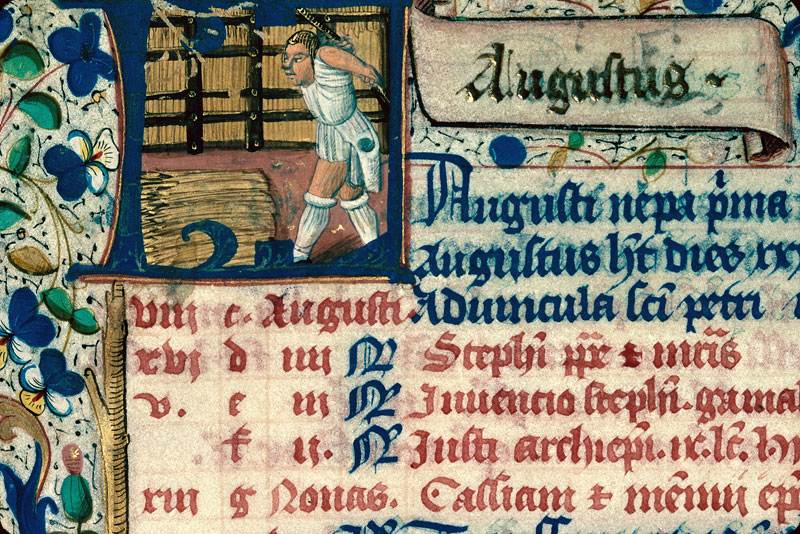 Augustus
Augusti nepa p̄ma
Augustus ht̄ dies xx
viij c. Augusti Aduincula sc̄i petri
xvj d iiij N̄ Stephī pp̄e ⁊ mr̄is
v. e iij N̄ Inuencio stephī. gama
f ij. N̄ Iusti archiepī. ix. lc̄.
xiij g Nonas. Cassiani ⁊ mēmij ep̄